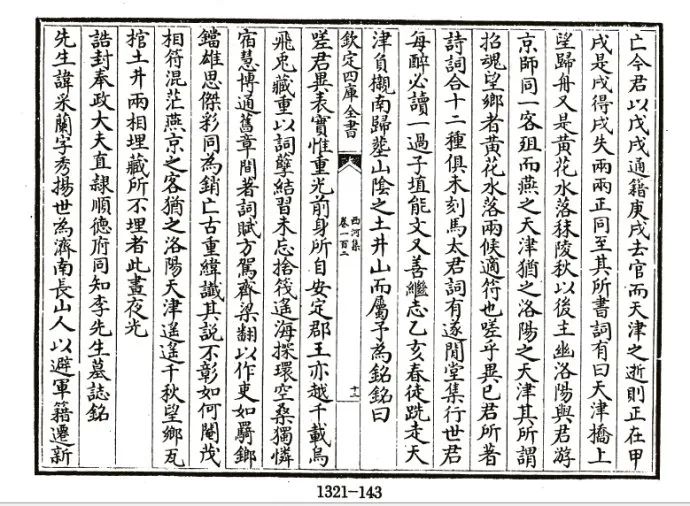 亡今君以戊戌通籍庚戌去官而天津之逝則正在甲
戌是戌得戌失兩兩正同至其所書詞有曰天津橋上
望歸舟又是黃花水落秣陵秋以後主幽洛陽與君游
京師同一客殂而燕之天津猶之洛陽之天津其所謂
招魂望鄉者黃花水落兩候適符也嗟乎異已君所著
詩詞合十二種俱未刻馬太君詞有遂閒堂集行世君
每醉必讀一過子埴能文又善繼志乙亥春徒跣走天
津負櫬南歸塟山陰之土井山而屬予為銘銘曰
欽定四庫全書
西河集
卷一百二
十二
嗟君異表實惟重光前身所自安定郡王亦越千載烏
飛兎藏重以詞孽結習未忘捨筏遙海探環空桑獨憐
宿慧博通舊章間者詞賦方駕齊梁翻以作吏如羇鄉
鐺雄思傑彩同為銷亡古重緯讖其說不彰如何閹茂
相符混茫燕京之客猶之洛陽天津遙遙千秋望鄉瓦
棺土井兩相埋藏所不埋者此晝夜光
誥封奉政大夫直隷順德府同知李先生墓誌銘
先生諱采蘭字秀揚世為濟南長山人以避軍籍遷新
1321-143